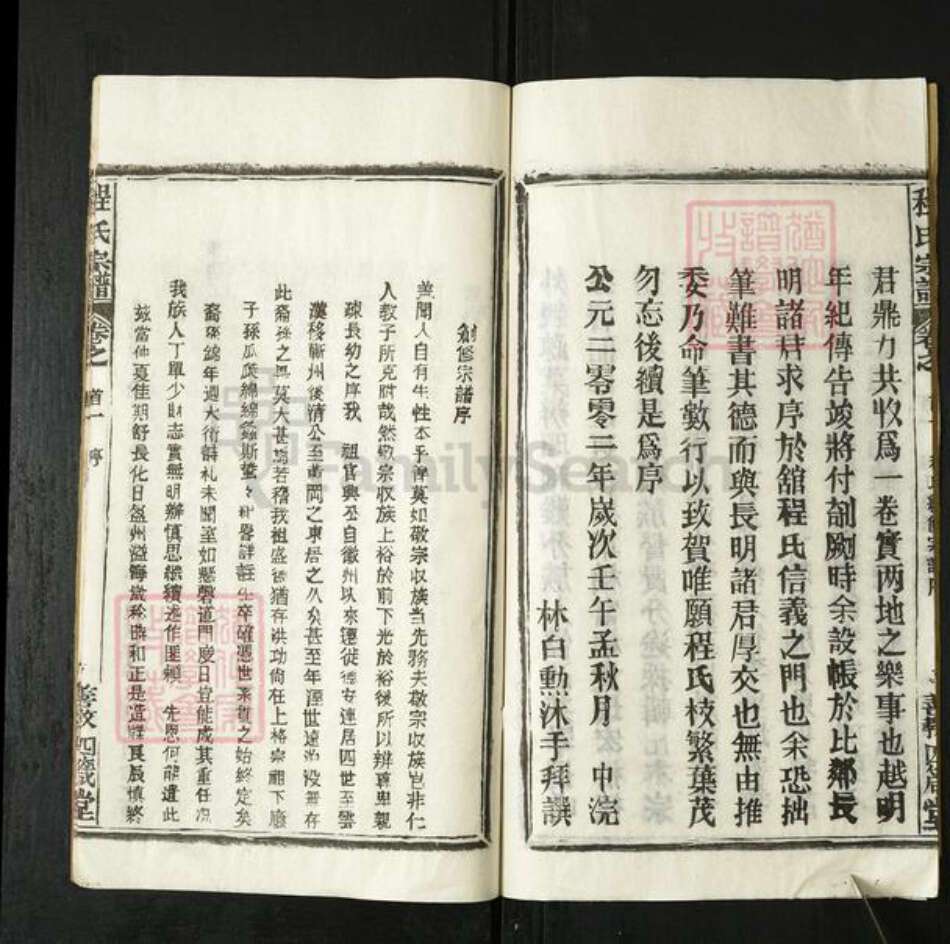 君鼎力共收爲一卷實两地之樂事也越明
年紀傳告竣將付剞劂時余設帳於比鄰長
明諸君求序於舘程氏信義之門也余恐拙
筆難書其德而與長明諸君厚交也無由推
委乃命筆數行以致賀唯願程氏枝繁葉茂
勿忘後續是爲序
公元二零零二年歲次壬午孟秋月 中浣
林白勲沐手拜譔
程氏宗譜
卷之
修宗譜序
盖聞人自有生性本乎善莫如敬宗収族当先務夫敬宗収族豈非仁
人敎子所克尉哉然敬宗収族上裕於前下光於裕後所以辨尊卑親
疎長幼之序我 祖官興公自徽州以來遷徙德安連居四世至雲
漢移蘄州後清公至黄岡之東居之久矣甚至年湮世遠
此裔孫之 莫大甚焉若稽我祖盛德猶存洪功尙在上格宗祖下廕
子孫瓜瓞綿綿螽斯蟄々 詳註生卒確憑世系貫之始終定矣
裔孫錦年週大衍詩礼未聞室如懸磬道門慶日豈能成其重任况
我族人丁單少財志實無明辦慎思繼續述作匪賴 先恩何能遺此
兹當仲夏佳期舒長化日盈州溢海歲稔時和正是造譜良辰慎終
程氏宗譜
卷之
首一
序
四箴堂